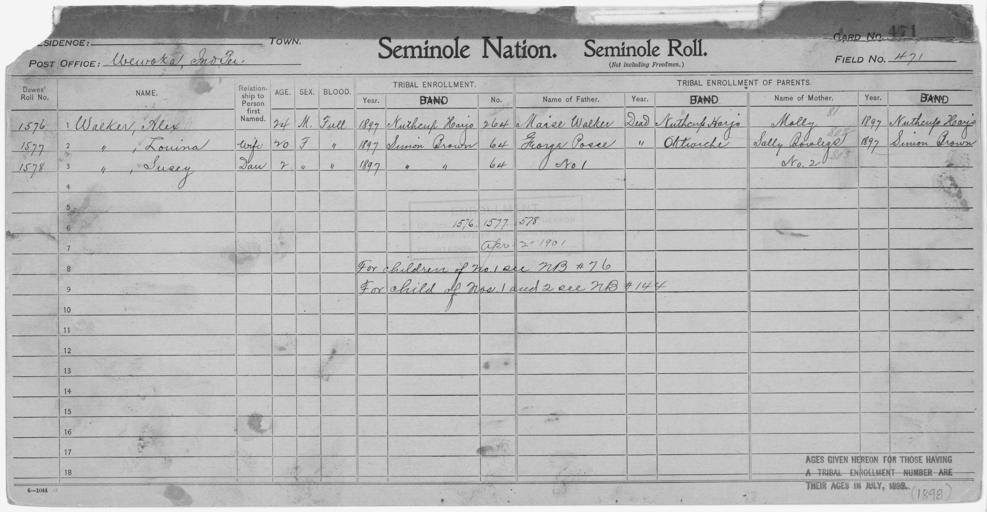 RESIDENCE: TOWN. Seminole Nation. Seminole Roll. CARD NO. 471
POST OFFICE: Wewoka, Ind Ter. (Not including Freedmen.) FIELD NO. 471
Dawes' Roll No. NAME. Relationship to Person first Named. AGE. SEX. BLOOD. TRIBAL ENROLLMENT. TRIBAL ENROLLMENT OF PARENTS.
Year. BAND No. Name of Father. Year. BAND Name of Mother. Year. BAND
1576 1 Walker, Alex 24 M. Full 1897 Nuthcup Harjo 264 Walker Dead Nuthcup Harjo Molly 1897 Nuthcup Harjo
1577 2 " , Louina Wife 20 F " 1897 Simon Brown 64 George " Sally Bowlegs 1897 Simon Brown
1578 3 " , Susey Dau 2 " " 1897 " " 64 No 1 No. 2
4
5
6 1576 1577 1578
7 Apr 2 1901
8 For children of No. 1 see NB #76
9 For child of Nos. 1 and 2 see NB #144
10
11
12
13
14
15
16
17
18
AGES GIVEN HEREON FOR THOSE HAVING
A TRIBAL ENROLLMENT NUMBER ARE
THEIR AGES IN JULY, 1898. (1898)
6-1044